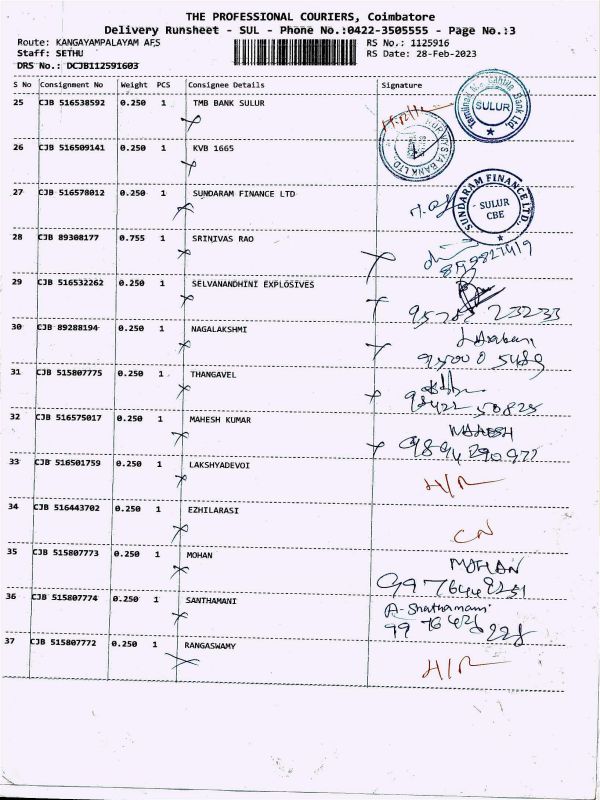 THE PROFESSIONAL COURIERS, Coimbatore
Delivery Runsheet - SUL - Phone No.:0422-3505555 - Page No.:3
Route: KANGAYAMPALAYAM AFS RS No.: 1125916
Staff: SETHU RS Date: 28-Feb-2023
DRS No.: DCJB112591603
S No Consignment No Weight PCS Consignee Details Signature
25 CJB 516538592 0.250 1 TMB BANK SULUR
SULUR
26 CJB 516509141 0.250 1 KVB 1665
27 CJB 516578012 0.250 1 SUNDARAM FINANCE LTD
SUNDARAM FINANCE LTD.
SULUR
CBE
28 CJB 89308177 0.755 1 SRINIVAS RAO
29 CJB 516532262 0.250 1 SELVANANDHINI EXPLOSIVES
30 CJB 89288194 0.250 1 NAGALAKSHMI
31 CJB 515807775 0.250 1 THANGAVEL
98422 50825
32 CJB 516575017 0.250 1 MAHESH KUMAR
MAHESH
33 CJB 516501759 0.250 1 LAKSHYADEVOI
H/R
34 CJB 516443702 0.250 1 EZHILARASI
CN
35 CJB 515807773 0.250 1 MOHAN
MOHAN
36 CJB 515807774 0.250 1 SANTHAMANI
37 CJB 515807772 0.250 1 RANGASWAMY
H/R